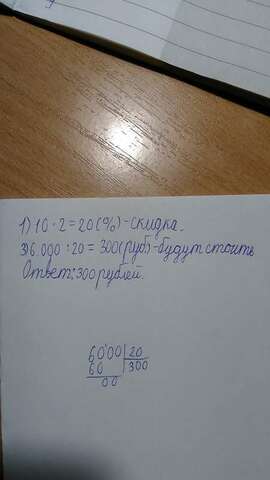 1) 10 · 2 = 20 (%) - скидка.
3) 6.000 : 20 = 300 (руб) - будут стоить
Ответ: 300 рублей.
6000 20
60 300
00